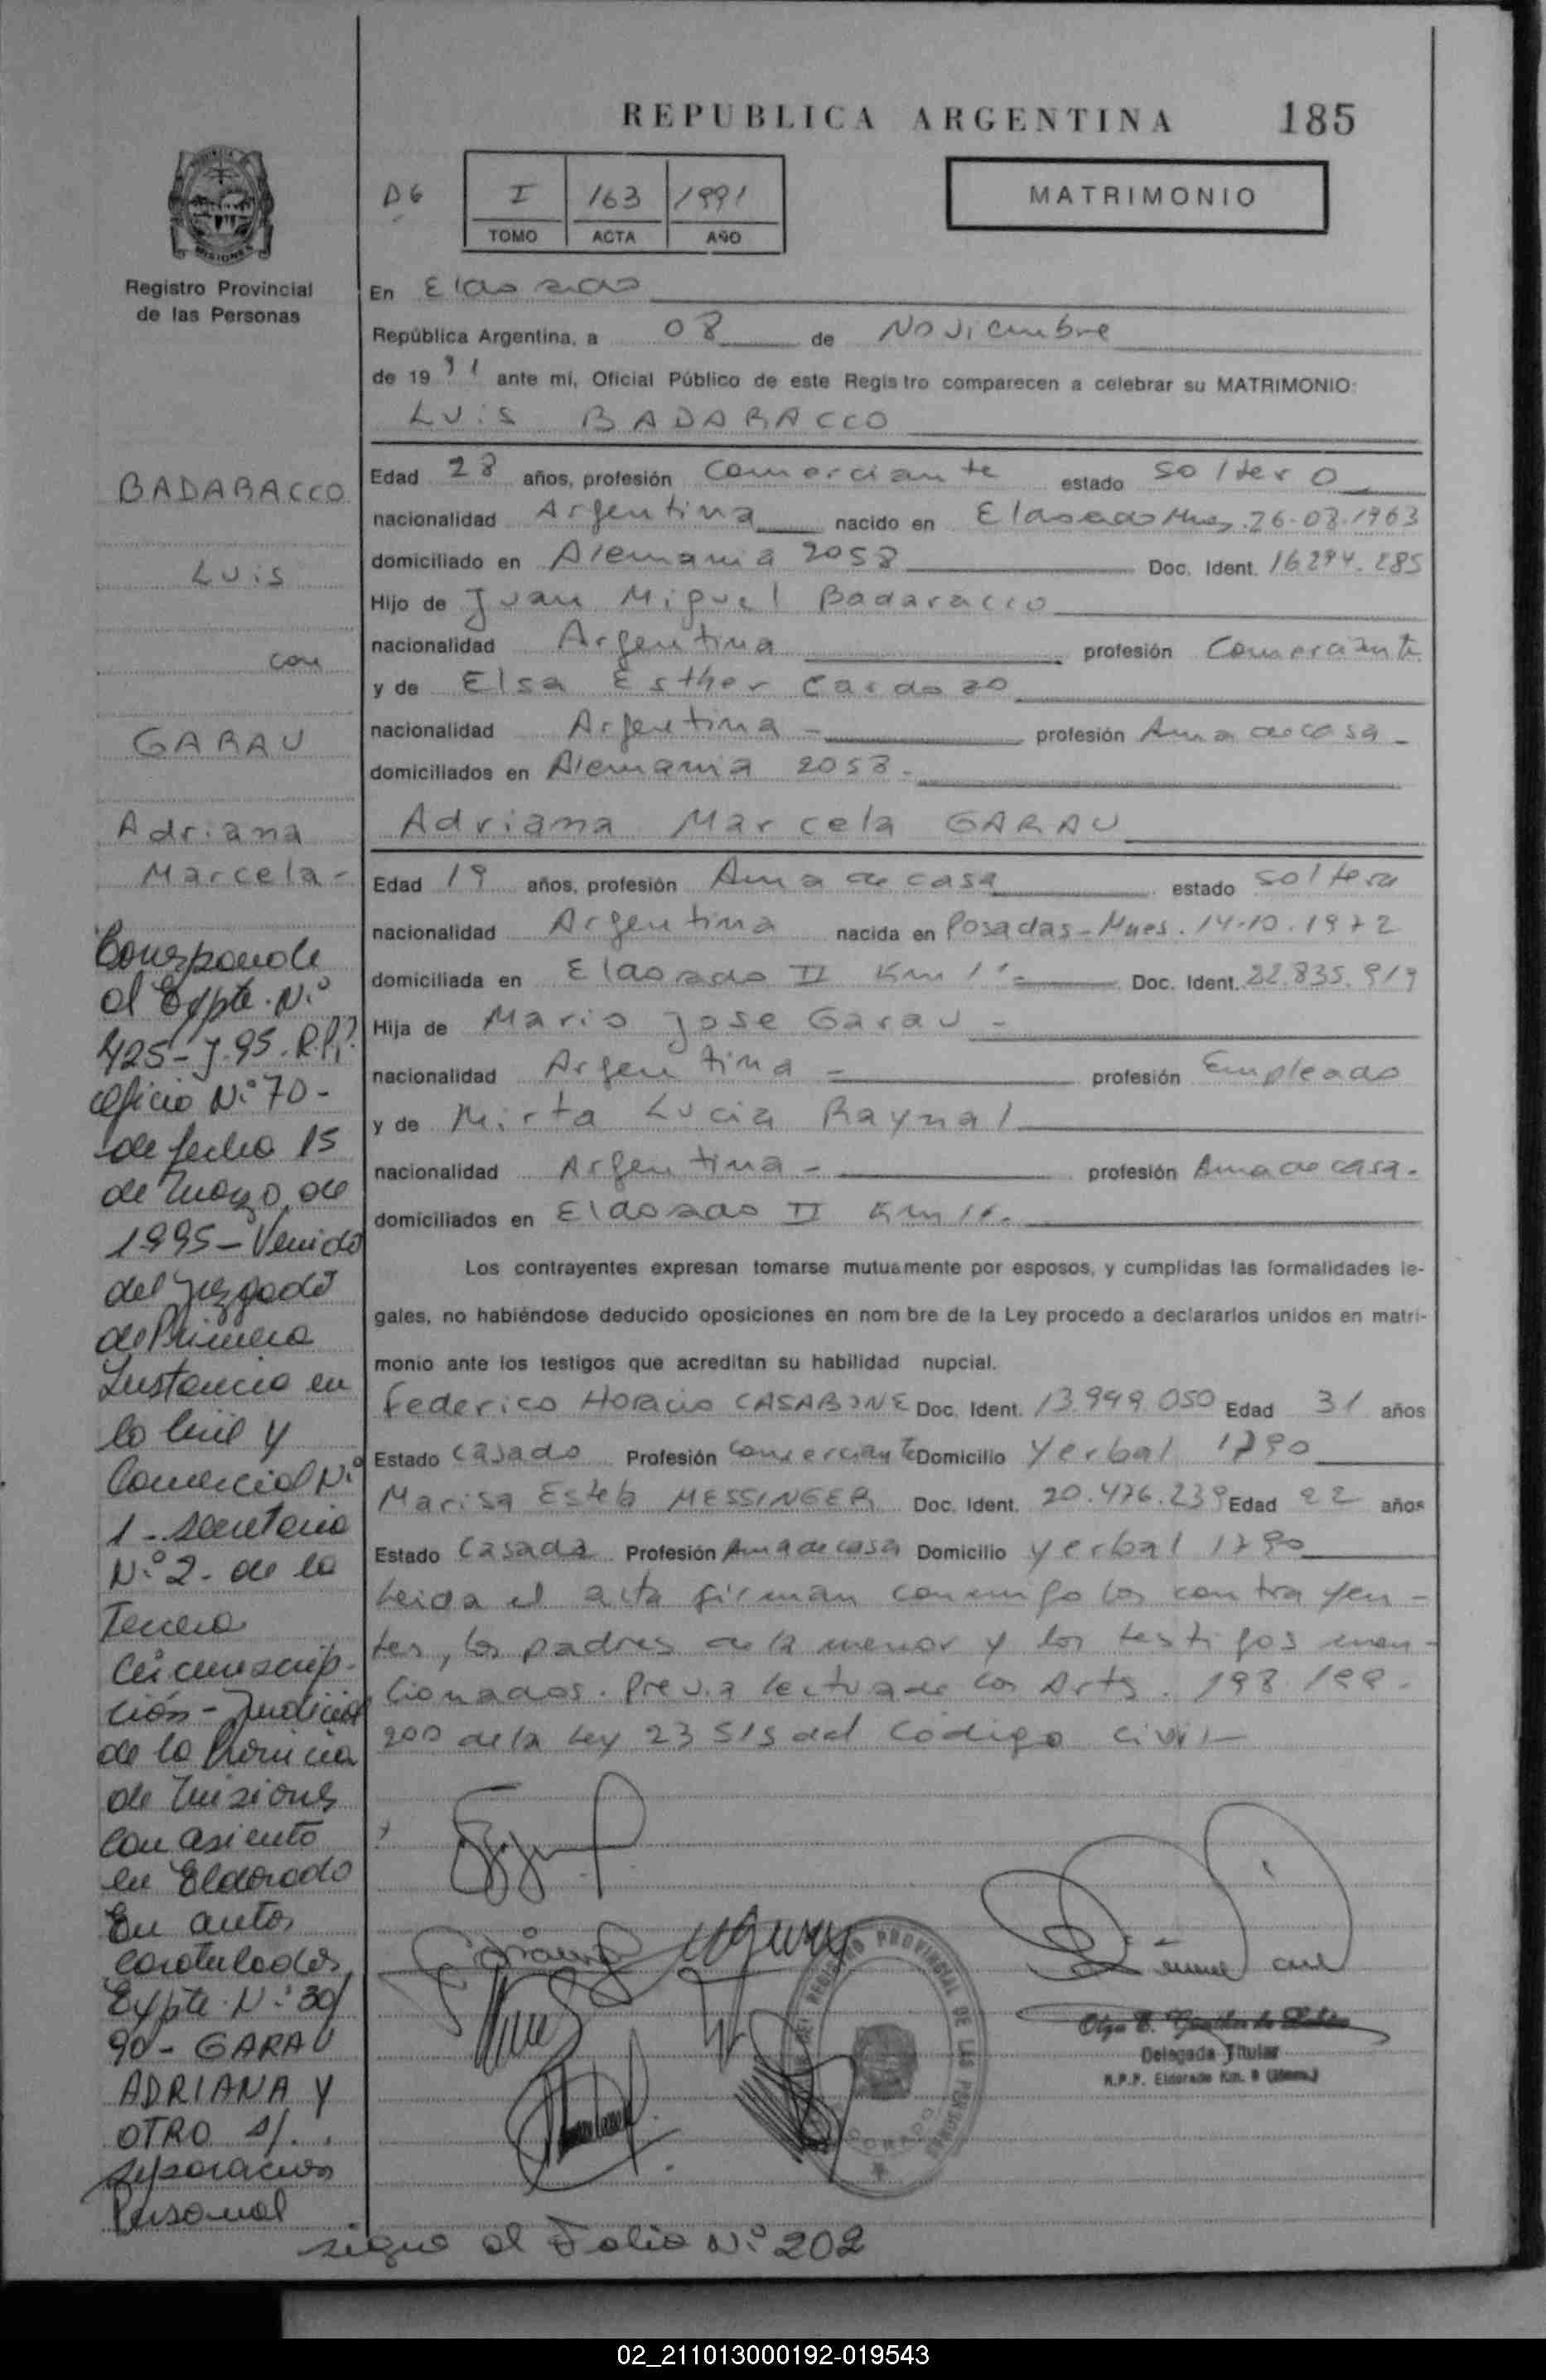 REPUBLICA ARGENTINA 185
D6 I 163 1991
TOMO ACTA AÑO
MATRIMONIO
Registro Provincial
de las Personas
BADARACCO
Luis
con
GARAU
Adriana
Marcela-
Corresponde
al Expte. N.°
425-J-95. R.P.P.
Oficio N.° 70-
de fecha 15
de Marzo de
1995-Venido
del Juzgado
de Primera
Instancia en
lo Civil y
Comercial N.°
1-Secretaria
N.° 2. de la
Tercera
Circunscrip-
ción-Judicial
de la Provincia
de Misiones
con asiento
en Eldorado
En autos
Caratulados
Expte. N.° 30/
90-GARAU
ADRIANA Y
OTRO s/..
Separacion
Personal
En Eldorado
República Argentina, a 08 de Noviembre
de 1991 ante mí, Oficial Público de este Regis tro comparecen a celebrar su MATRIMONIO:
Luis BADARACCO
Edad 28 años, profesión Comerciante estado soltero
nacionalidad Argentina nacido en Eldorado Mnes. 26-08-1963
domiciliado en Alemania 2058 Doc. Ident. 16.294.285
Hijo de Juan Miguel Badaracco
nacionalidad Argentina profesión Comerciante
y de Elsa Esther Cardozo
nacionalidad Argentina - profesión Ama de casa -
domiciliados en Alemania 2058-
Adriana Marcela GARAU
Edad 19 años, profesión Ama de casa estado soltera
nacionalidad Argentina nacida en Posadas-Mnes. 14-10.1972
domiciliada en Eldorado II Km 11- Doc. Ident. 22.835.919
Hija de Mario Jose Garau -
nacionalidad Argentina - profesión Empleado
y de Mirta Lucia Raynal
nacionalidad Argentina - profesión Ama de casa-
domiciliados en Eldorado II Km 11.
Los contrayentes expresan tomarse mutuamente por esposos, y cumplidas las formalidades le-
gales, no habiéndose deducido oposiciones en nom bre de la Ley procedo a declararlos unidos en matri-
monio ante los testigos que acreditan su habilidad nupcial.
Federico Horacio CASABONE Doc. Ident. 13.949.050 Edad 31 años
Estado Casado Profesión Comerciante Domicilio Yerbal 1790
Marisa Estela MESSINGER Doc. Ident. 20.476.239 Edad 22 años
Estado Casada Profesión Ama de casa Domicilio Yerbal 1790
Leida el acta firman conmigo los contrayen-
tes, los padres de la menor y los testigos men-
cionados. Previa lectura de los Arts. 198.199-
200 de la Ley 23515 del Código Civil-
REGISTRO PROVINCIAL DE LAS PERSONAS
Delegada Titular
R.P.P. Eldorado Km. 9 (Mnes.)
sigue al Folio N.° 202
02_211013000192-019543